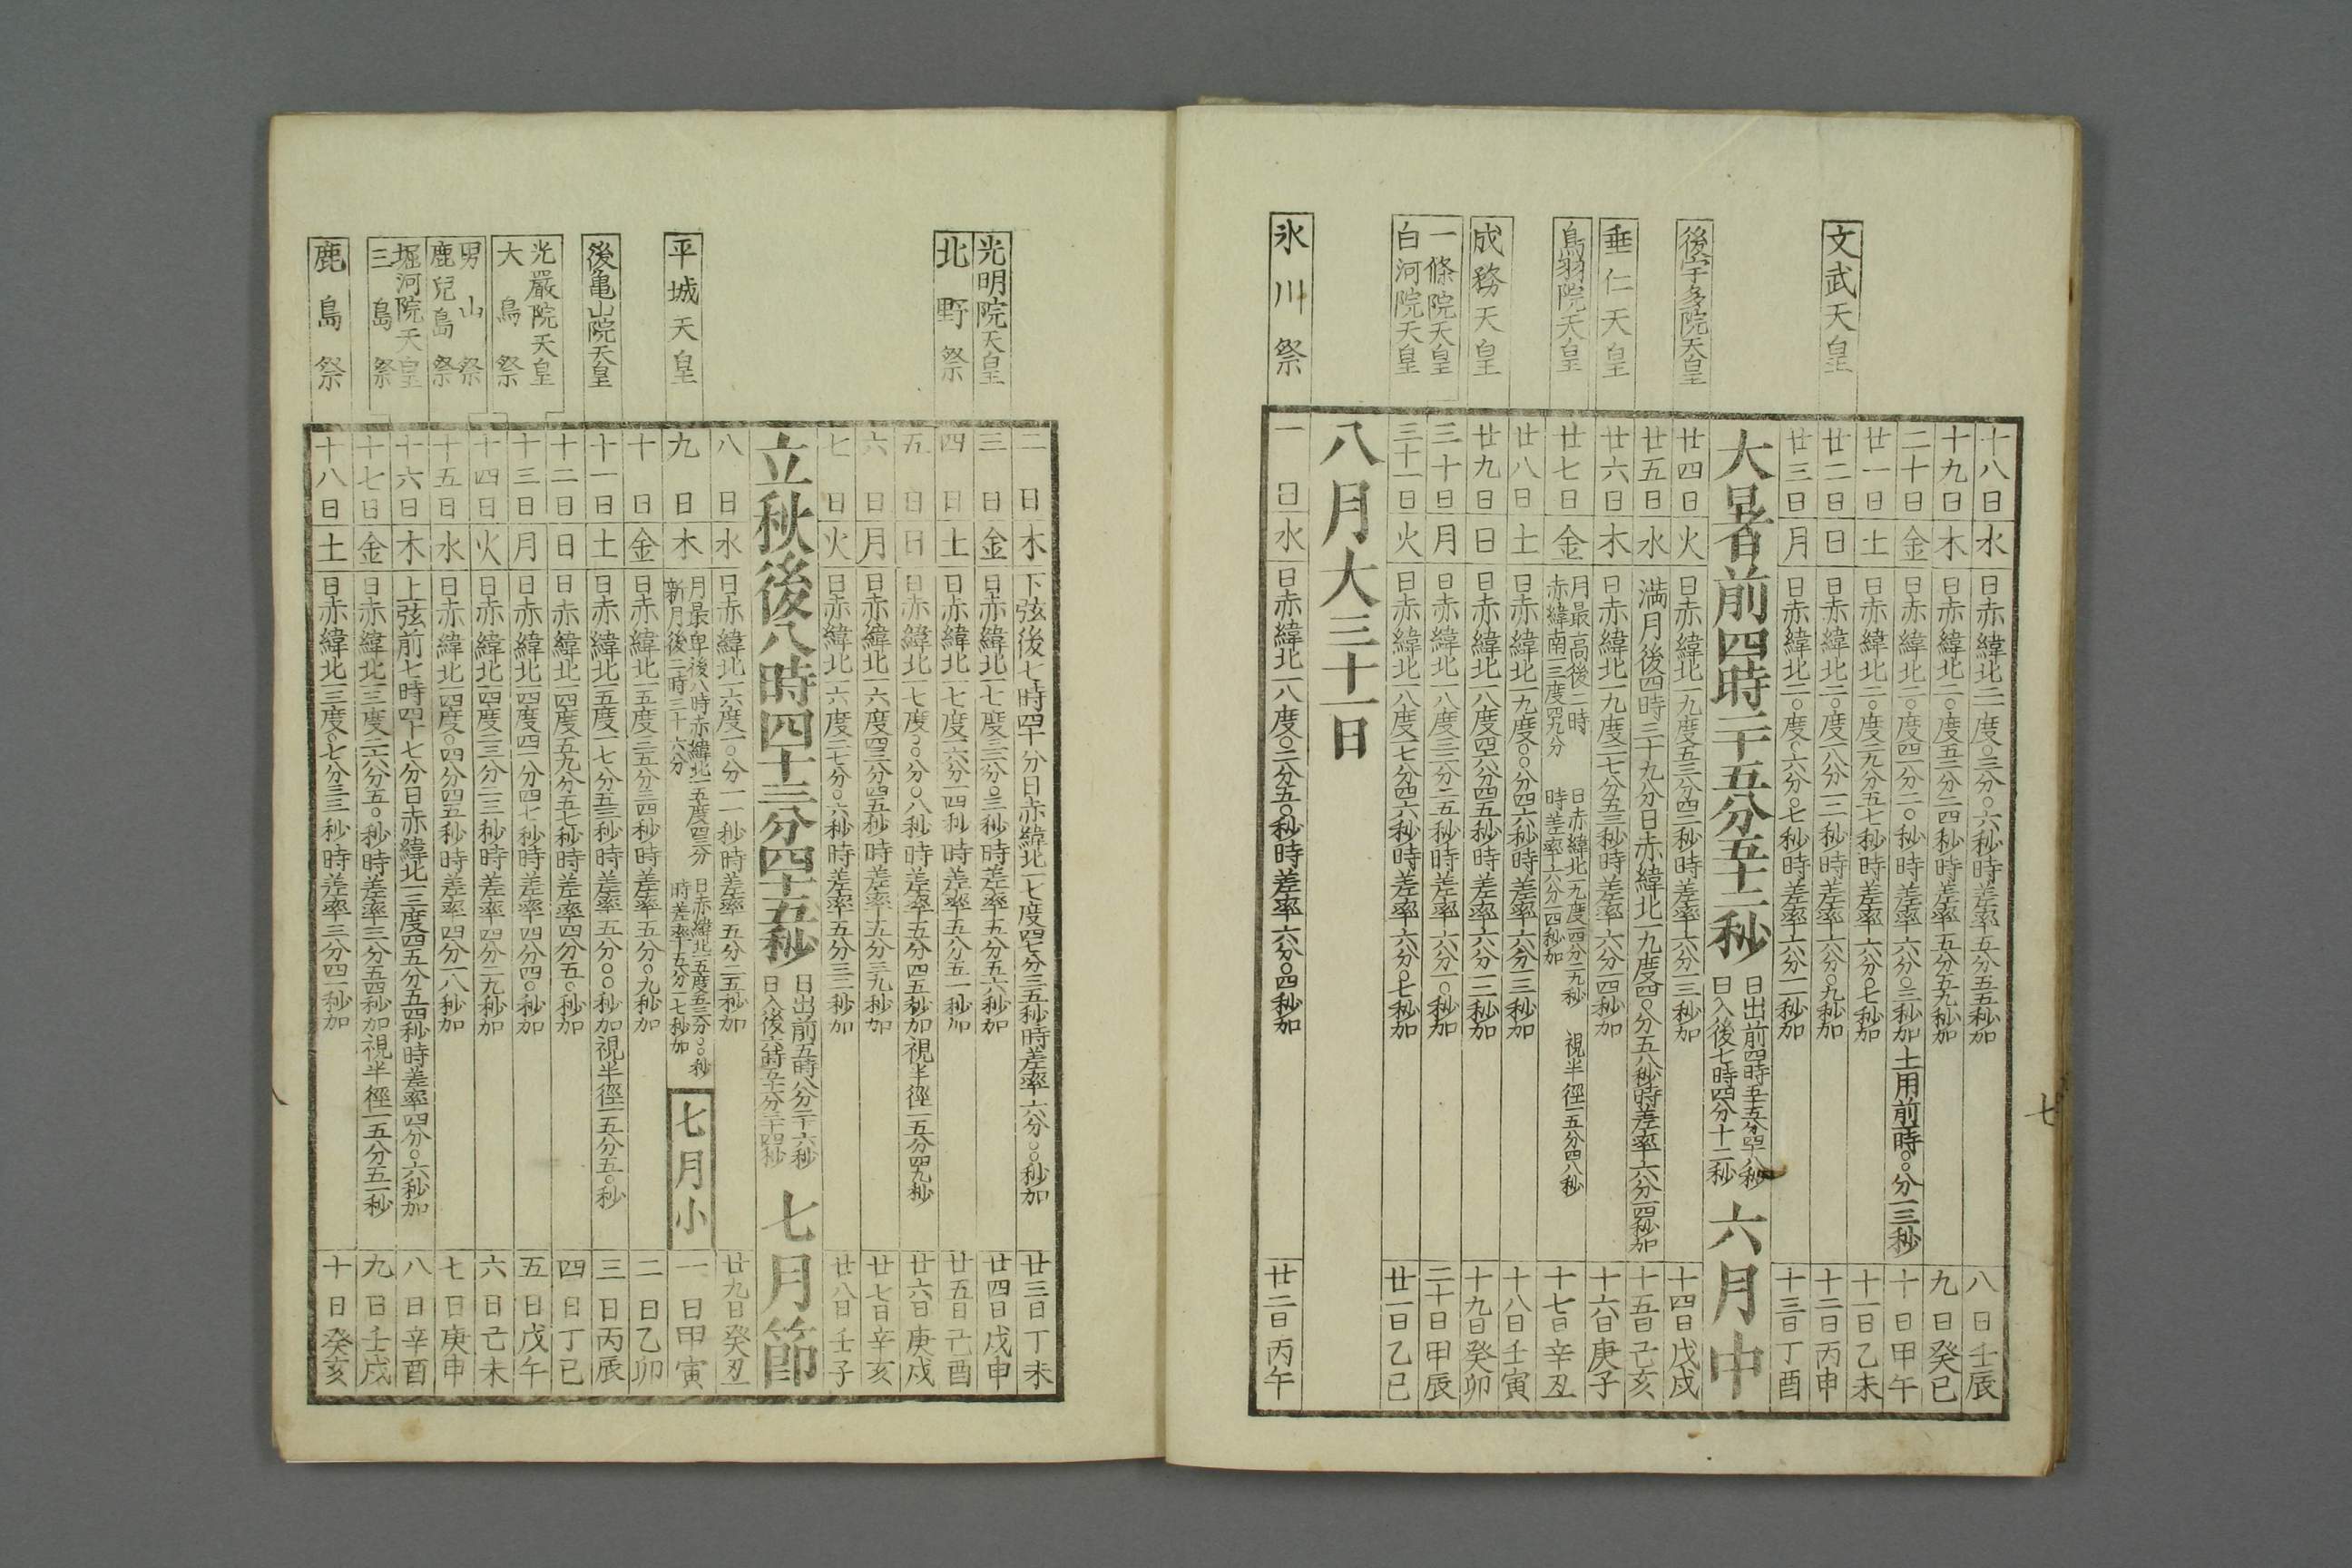 七
十八日 水 日赤緯北二一度〇三分〇六秒時差率五分五五秒加 八日壬辰
十九日 木 日赤緯北二〇度五三分二四秒時差率五分五九秒加 九日癸巳
二十日 金 日赤緯北二〇度四一分二〇秒時差率六分〇三秒加 十日甲午
廿一日 土 日赤緯北二〇度二九分五七秒時差率六分〇七秒加 十一日乙未
文武天皇
廿二日 日 日赤緯北二〇度一八分一二秒時差率六分〇九秒加 十二日丙申
廿三日 月 日赤緯北二〇度〇六分〇七秒時差率六分一二秒加 十三日丁酉
大暑前四時二十五分五十一秒
日出前四時五十五分四十八秒
日入後七時四分十二秒
六月中
廿四日 火 日赤緯北一九度五三分四二秒時差率六分一三秒加 十四日戊戌
後宇多院天皇
廿五日 水 満月後四時三十九分日赤緯北一九度四〇分五八秒時差率六分一四秒加 十五日己亥
垂仁天皇
廿六日 木 日赤緯北一九度二七分五三秒時差率六分一四秒加 十六日庚子
鳥羽院天皇
廿七日 金 月最高後二時
赤緯南一三度四九分
時差率六分一四秒加
視半徑一五分四八秒 十七日辛丑
廿八日 土 日赤緯北一九度〇〇分四六秒時差率六分一三秒加 十八日壬寅
成務天皇
廿九日 日 日赤緯北一八度四六分四五秒時差率六分一二秒加 十九日癸卯
一條院天皇
三十日 月 日赤緯北一八度三二分二五秒時差率六分一〇秒加 二十日甲辰
白河院天皇
三十一日 火 日赤緯北一八度一七分四六秒時差率六分〇七秒加 廿一日乙巳
八月大三十一日
氷川祭
一日 水 日赤緯北一八度〇二分五〇秒時差率六分〇四秒加 廿二日丙午
二日 木 下弦後七時四十一分日赤緯北一七度四七分三五秒時差率六分〇〇秒加 廿三日丁未
光明院天皇
三日 金 日赤緯北一七度三二分〇三秒時差率五分五六秒加 廿四日戊申
北野祭
四日 土 日赤緯北一七度一六分一四秒時差率五分五一秒加 廿五日己酉
五日 日 日赤緯北一七度〇〇分〇八秒時差率五分四五秒加視半徑一五分四九秒 廿六日庚戌
六日 月 日赤緯北一六度四三分四五秒時差率五分三九秒加 廿七日辛亥
七日 火 日赤緯北一六度二七分〇六秒時差率五分三二秒加 廿八日壬子
立秋後八時四十三分四十五秒
日出前五時八分二十六秒
日入後六時五十一分三十四秒
七月節
八日 水 日赤緯北一六度一〇分一一秒時差率五分二五秒加 廿九日癸丑
平城天皇
九日 木 月最卑後八時赤緯北一五度四三分
新月後二時三十六分
日赤緯北一五度五三分〇〇秒
時差率五分一七秒加
七月小 一日甲寅
十日 金 日赤緯北一五度三五分三四秒時差率五分〇九秒加 二日乙卯
後亀山院天皇
十一日 土 日赤緯北一五度一七分五三秒時差率五分〇〇秒加視半徑一五分五〇秒 三日丙辰
十二日 日 日赤緯北一四度五九分五七秒時差率四分五〇秒加 四日丁巳
光嚴院天皇
大鳥祭
十三日 月 日赤緯北一四度四一分四七秒時差率四分四〇秒加 五日戊午
十四日 火 日赤緯北一四度二三分二三秒時差率四分二九秒加 六日己未
男山祭
鹿兒島祭
十五日 水 日赤緯北一四度〇四分四五秒時差率四分一八秒加 七日庚申
堀河院天皇
十六日 木 上弦前七時四十七分日赤緯北一三度四五分五四秒時差率四分〇六秒加 八日辛酉
三島祭
十七日 金 日赤緯北一三度二六分五〇秒時差率三分五四秒加視半徑一五分五一秒 九日壬戌
鹿島祭
十八日 土 日赤緯北一三度〇七分三三秒時差率三分四一秒加 十日癸亥